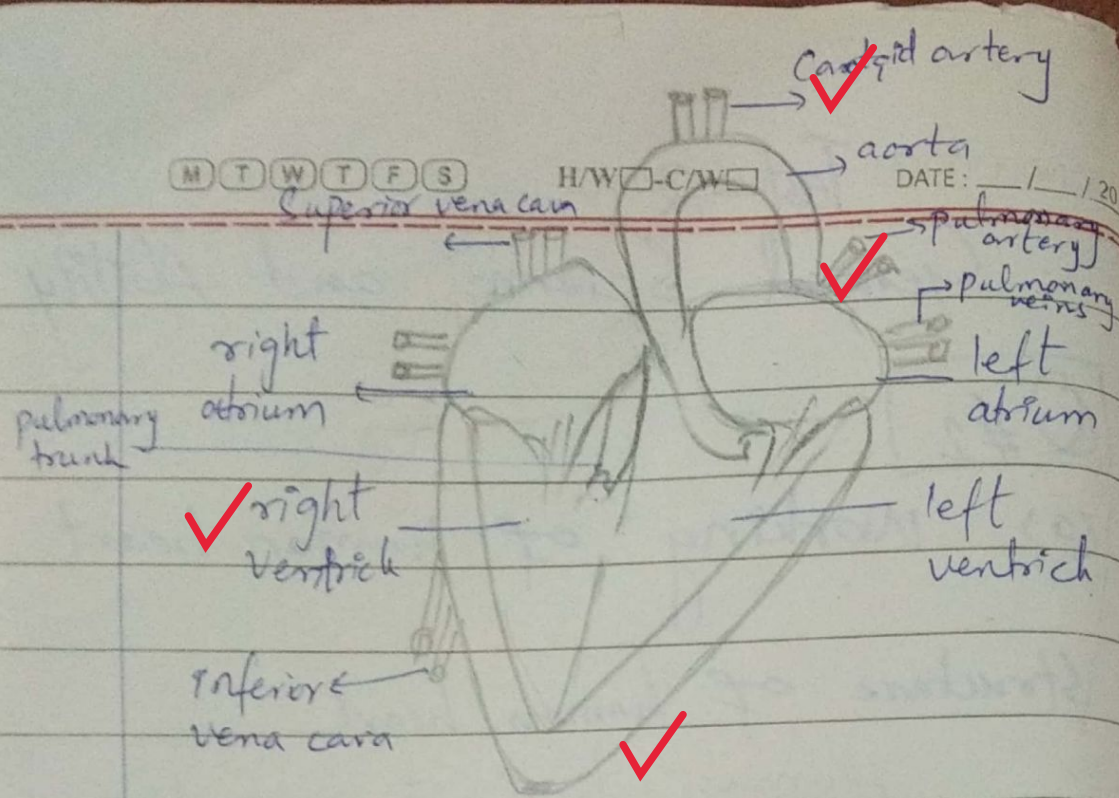 Carotid artery
aorta
M T W T F S
H/W -C/W
DATE : __/__/20
Superior vena cava
pulmonary
artery
pulmonary
veins
right
atrium
left
atrium
pulmonary
trunk
right
ventrick
left
ventrich
Inferior
vena cava